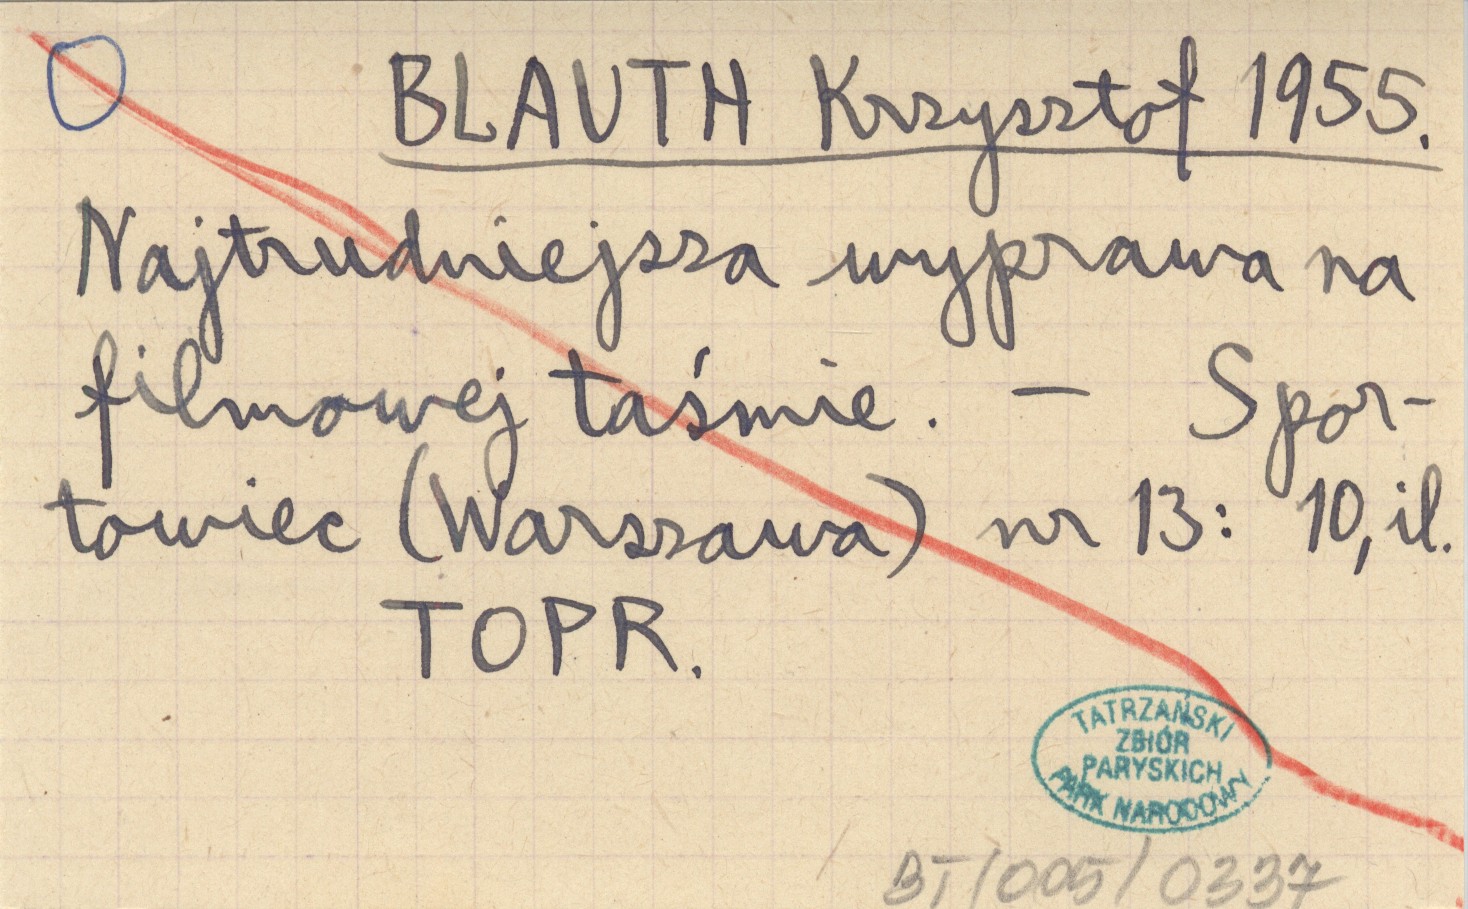 BLAUTH Krzysztof 1955.
Najtrudniejsza wyprawa na
filmowej taśmie. – Spor-
towiec (Warszawa) nr 13: 10, il.
TOPR.
TATRZAŃSKI
ZBIÓR
PARYSKICH
PARK NARODOWY
BT/005/0337